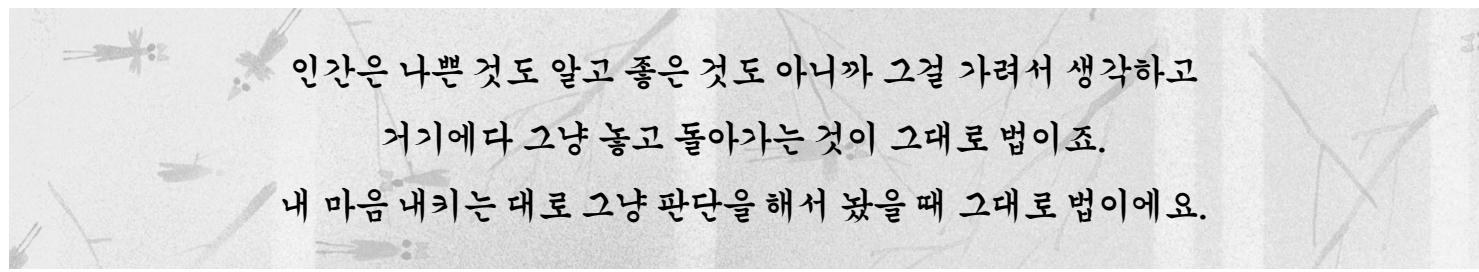 인간은 나쁜 것도 알고 좋은 것도 아니까 그걸 가려서 생각하고
거기에다 그냥 놓고 돌아가는 것이 그대로 법이죠.
내 마음 내키는 대로 그냥 판단을 해서 놨을 때 그대로 법이에요.